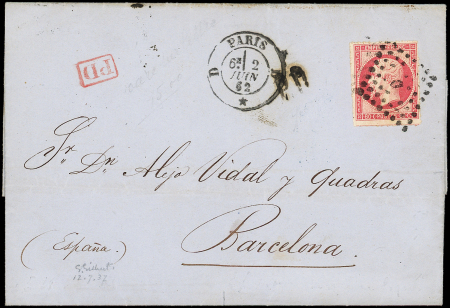 PD
D PARIS
6E 2
JUIN
62
Sr. Dn. Alejo Vidal y Quadras
Barcelona.
(España)